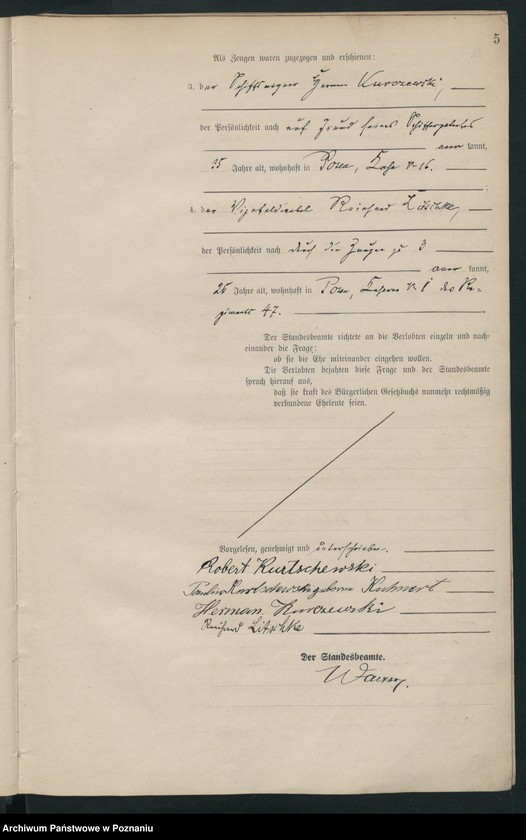 5
Als Zeugen waren zugezogen und erschienen:
3. der Schiffseigner Herman Kurozewski,
der Persönlichkeit nach auf Grund seines
aner kannt,
35 Jahre alt, wohnhaft in Posen,
4. der Vizefeldwebel Reinhard Litschke,
der Persönlichkeit nach durch den Zeugen zu 3
aner kannt,
26 Jahre alt, wohnhaft in Posen, Kaserne I des Re-
giments 47.
Der Standesbeamte richtete an die Verlobten einzeln und nach-
einander die Frage:
ob sie die Ehe miteinander eingehen wollen.
Die Verlobten bejahten diese Frage und der Standesbeamte
sprach hierauf aus,
daß sie kraft des Bürgerlichen Gesetzbuchs nunmehr rechtmäßig
verbundene Eheleute seien.
Vorgelesen, genehmigt und unterschrieben.
Robert Kurtschewski
Kurtschewski geborene Kuhnert
Herman Kurozewski
Reinhard Litschke
Der Standesbeamte.
Archiwum Państwowe w Poznaniu